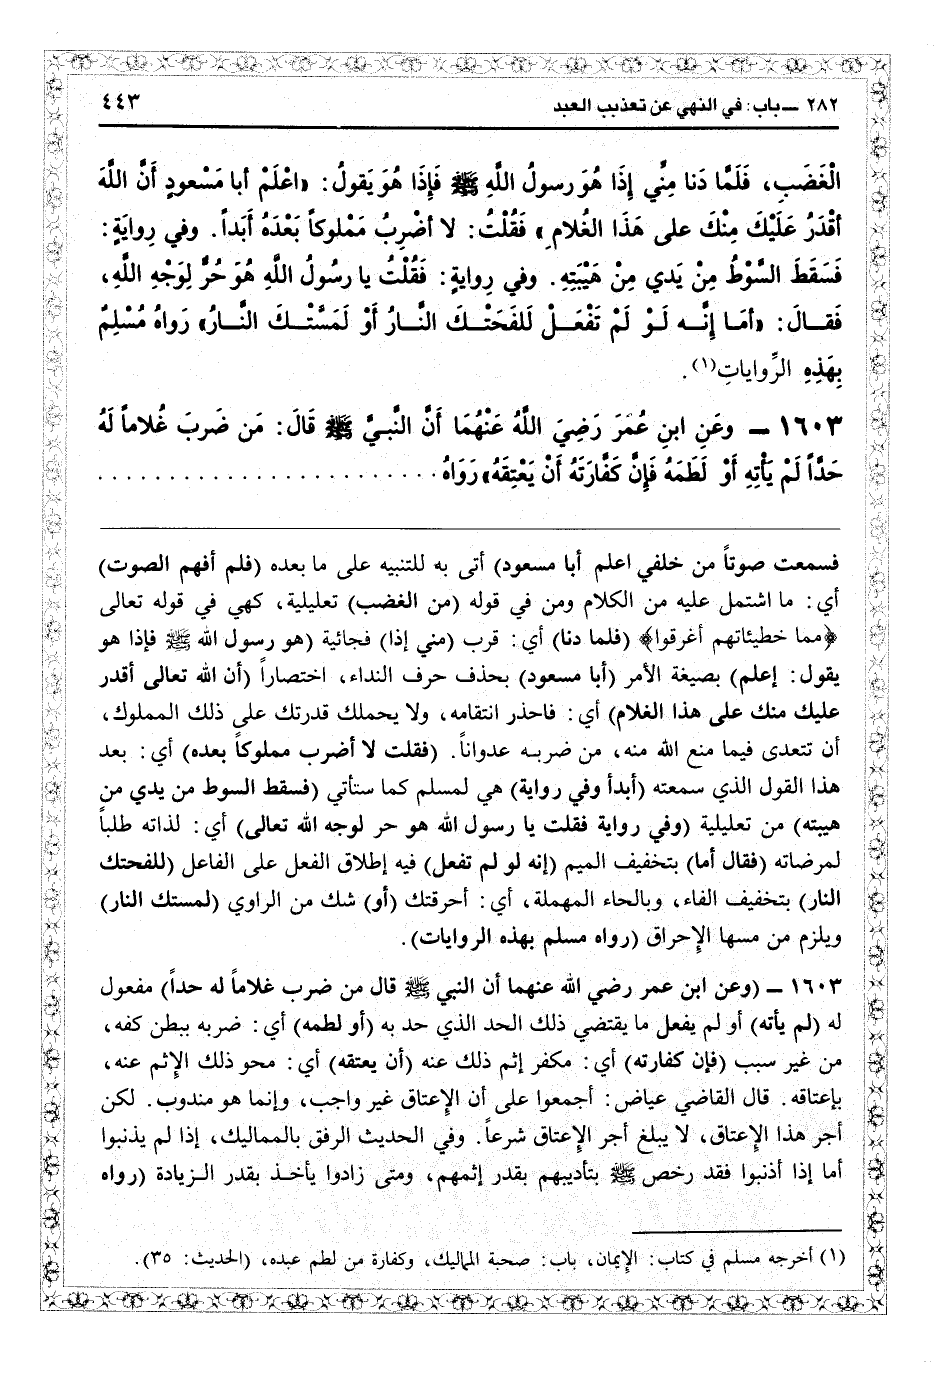 ٢٨٢ ــ باب: في النهي عن تعذيب العبد ٤٤٣
الْغَضَبِ، فَلَمَّا دَنا مِنِّي إذَا هُوَ رسولُ اللَّهِ ﷺ فَإذَا هُوَ يَقولُ: «اعْلَمْ أبا مَسْعودٍ أنَّ اللَّهَ
أقْدَرُ عَلَيْكَ مِنْكَ على هَذَا الغُلامِ» فَقُلْتُ: لا أضْرِبُ مَمْلوكاً بَعْدَهُ أبَداً. وفي رِوايَةٍ:
فَسَقَطَ السَّوْطُ مِنْ يَدي مِنْ هَيْبَتِهِ. وفي رِوايةٍ: فَقُلْتُ يا رسُولُ اللَّهِ هُوَ حُرٌّ لِوَجْهِ اللَّهِ،
فَقـالَ: «أمَـا إنَّـه لَـوْ لَـمْ تَفْعَـلْ لَلفَحَتْـكَ النَّـارُ أَوْ لَمَسَّتْـكَ النَّـارُ» رَواهُ مُسْلِمٌ
بِهَذِهِ الرِّواياتِ(١).
١٦٠٣ ــ وعَنِ ابنِ عُمَرَ رَضِيَ اللَّهُ عَنْهُمَا أنَّ النَّبيَّ ﷺ قَالَ: مَن ضَرَبَ غُلاماً لَهُ
حَدَّاً لَمْ يَأْتِهِ أوْ لَطَمَهُ فَإنَّ كَفَّارَتَهُ أنْ يَعْتِقَهُ» رَوَاهُ . . . . . . . . . . . . . . . . . . . . . . .
فسمعت صوتاً من خلفي اعلم أبا مسعود) أتى به للتنبيه على ما بعده (فلم أفهم الصوت)
أي: ما اشتمل عليه من الكلام ومن في قوله (من الغضب) تعليلية، كهي في قوله تعالى
﴿مما خطيئاتهم أغرقوا﴾ (فلما دنا) أي: قرب (مني إذا) فجائية (هو رسول الله ﷺ فإذا هو
يقول: إعلم) بصيغة الأمر (أبا مسعود) بحذف حرف النداء، اختصاراً (أن الله تعالى أقدر
عليك منك على هذا الغلام) أي: فاحذر انتقامه، ولا يحملك قدرتك على ذلك المملوك،
أن تتعدى فيما منع الله منه، من ضربه عدواناً. (فقلت لا أضرب مملوكاً بعده) أي: بعد
هذا القول الذي سمعته (أبداً وفي رواية) هي لمسلم كما ستأتي (فسقط السوط من يدي من
هيبته) من تعليلية (وفي رواية فقلت يا رسول الله هو حر لوجه الله تعالى) أي: لذاته طلباً
لمرضاته (فقال أما) بتخفيف الميم (إنه لو لم تفعل) فيه إطلاق الفعل على الفاعل (للفحتك
النار) بتخفيف الفاء، وبالحاء المهملة، أي: أحرقتك (أو) شك من الراوي (لمستك النار)
ويلزم من مسها الإحراق (رواه مسلم بهذه الروايات).
١٦٠٣ ــ (وعن ابن عمر رضي الله عنهما أن النبي ﷺ قال من ضرب غلاماً له حداً) مفعول
له (لم يأته) أو لم يفعل ما يقتضي ذلك الحد الذي حد به (أو لطمه) أي: ضربه ببطن كفه،
من غير سبب (فإن كفارته) أي: مكفر إثم ذلك عنه (أن يعتقه) أي: محو ذلك الإثم عنه،
بإعتاقه. قال القاضي عياض: أجمعوا على أن الإعتاق غير واجب، وإنما هو مندوب. لكن
أجر هذا الإعتاق، لا يبلغ أجر الإعتاق شرعاً. وفي الحديث الرفق بالمماليك، إذا لم يذنبوا
أما إذا أذنبوا فقد رخص ﷺ بتأديبهم بقدر إثمهم، ومتى زادوا يأخـذ بقدر الـزيادة (رواه
(١) أخرجه مسلم في كتاب: الإيمان، باب: صحبة المماليك، وكفارة من لطم عبده، (الحديث: ٣٥).